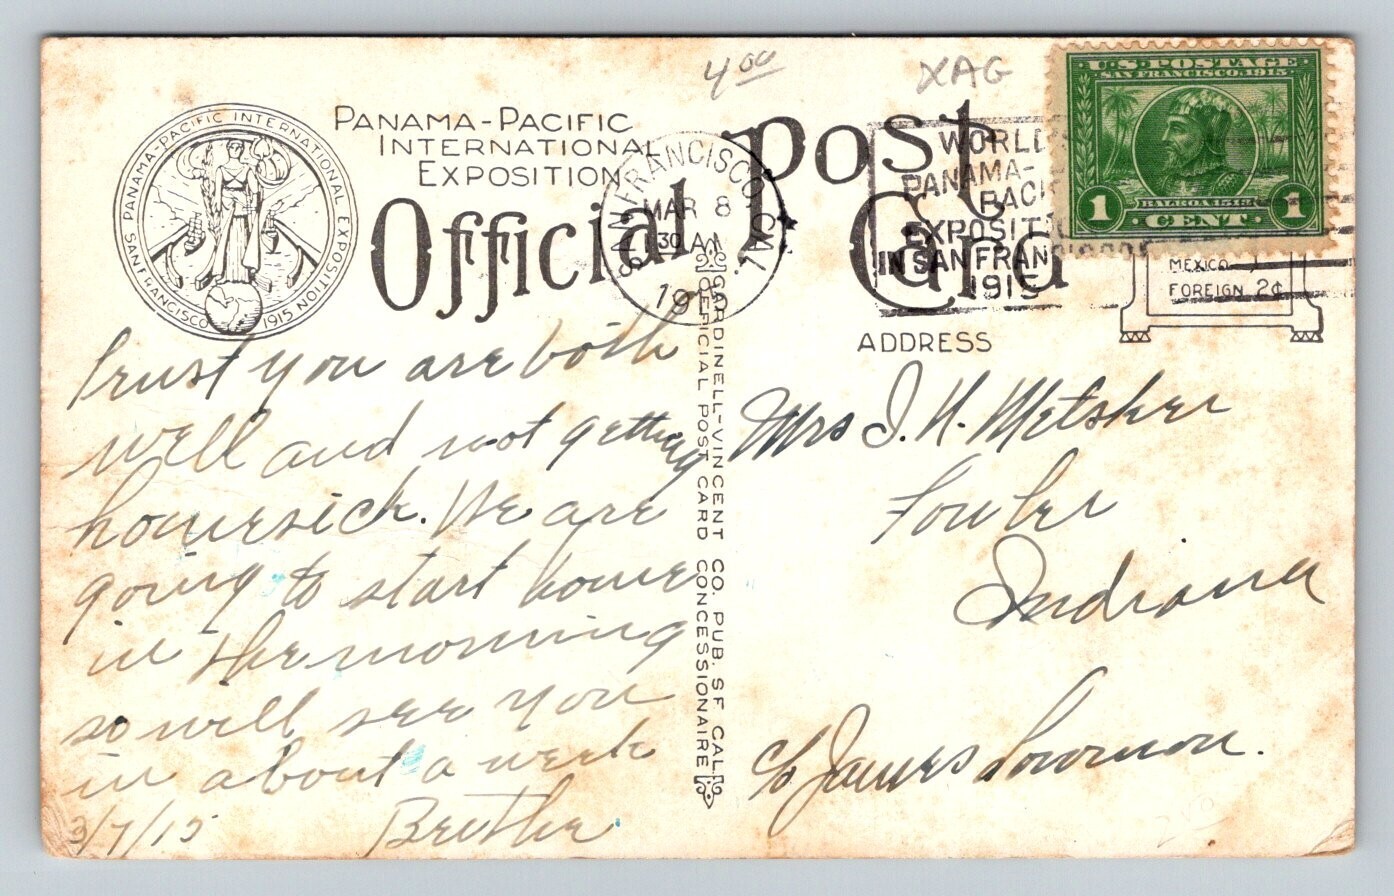 4.00
XAG
PANAMA-PACIFIC
INTERNATIONAL
EXPOSITION
Official Post Card
PANAMA-PACIFIC INTERNATIONAL EXPOSITION
SAN FRANCISCO 1915
SAN FRANCISCO, CAL.
MAR 8
30 AM
WORLD
PANAMA-
PACI
EXPOSIT
IN SAN FRANCISCO
1915
U.S. POSTAGE
SAN FRANCISCO 1915
BALBOA 1513
1 CENT 1
MEXICO
FOREIGN 2¢
ADDRESS
CARDINELL-VINCENT CO. PUB. S.F. CAL.
OFFICIAL POST CARD CONCESSIONAIRE
Trust you are both
well and not getting
homesick. We are
going to start home
in the morning
so will see you
in about a week
3/7/15 Brother
Mrs J. N. Metsker
Fowler
Indiana
c/o James